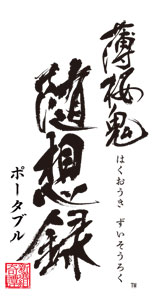 薄桜鬼
はくおうき ずいそうろく
随想録
ポータブル
TM